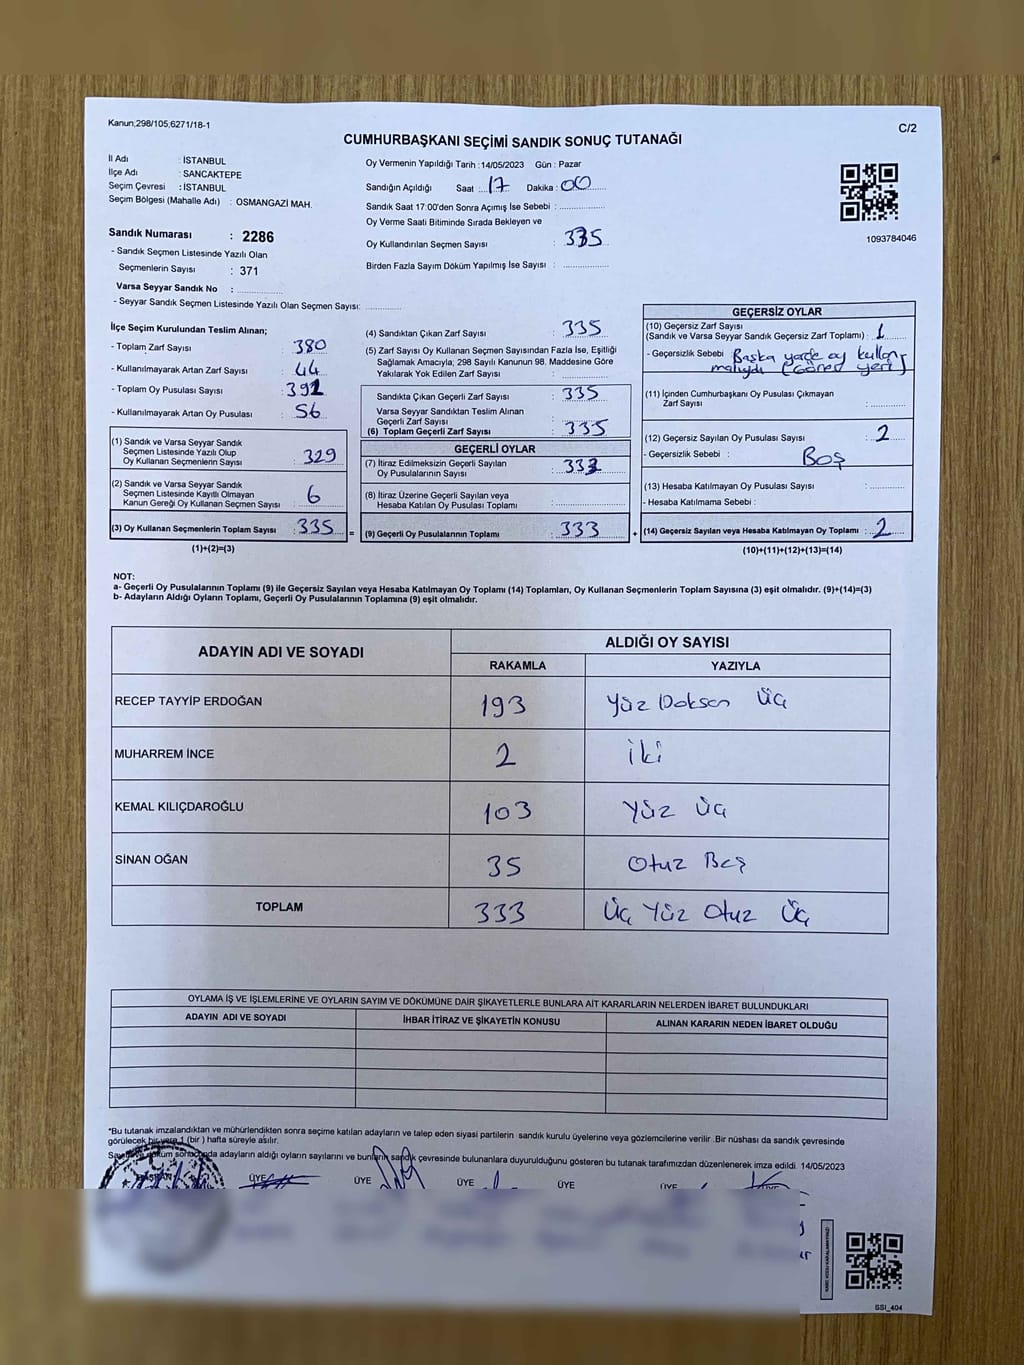 Kanun,298/105,6271/18-1
C/2
CUMHURBAŞKANI SEÇİMİ SANDIK SONUÇ TUTANAĞI
İl Adı : İSTANBUL
İlçe Adı : SANCAKTEPE
Seçim Çevresi : İSTANBUL
Seçim Bölgesi (Mahalle Adı) : OSMANGAZİ MAH.
Sandık Numarası : 2286
- Sandık Seçmen Listesinde Yazılı Olan
Seçmenlerin Sayısı : 371
Varsa Seyyar Sandık No :
- Seyyar Sandık Seçmen Listesinde Yazılı Olan Seçmen Sayısı:
Oy Vermenin Yapıldığı Tarih :14/05/2023 Gün : Pazar
Sandığın Açıldığı Saat : 17 Dakika : 00
Sandık Saat 17:00'den Sonra Açılmış İse Sebebi :
Oy Verme Saati Bitiminde Sırada Bekleyen ve
Oy Kullandırılan Seçmen Sayısı : 335
Birden Fazla Sayım Döküm Yapılmış İse Sayısı :
1093784046
İlçe Seçim Kurulundan Teslim Alınan;
- Toplam Zarf Sayısı : 380
- Kullanılmayarak Artan Zarf Sayısı : 44
- Toplam Oy Pusulası Sayısı : 391
- Kullanılmayarak Artan Oy Pusulası : 56
(1) Sandık ve Varsa Seyyar Sandık
Seçmen Listesinde Yazılı Olup
Oy Kullanan Seçmenlerin Sayısı : 329
(2) Sandık ve Varsa Seyyar Sandık
Seçmen Listesinde Kayıtlı Olmayan
Kanun Gereği Oy Kullanan Seçmen Sayısı : 6
(3) Oy Kullanan Seçmenlerin Toplam Sayısı : 335 =
(1)+(2)=(3)
(4) Sandıktan Çıkan Zarf Sayısı : 335
(5) Zarf Sayısı Oy Kullanan Seçmen Sayısından Fazla İse, Eşitliği
Sağlamak Amacıyla, 298 Sayılı Kanunun 98. Maddesine Göre
Yakılarak Yok Edilen Zarf Sayısı :
Sandıkta Çıkan Geçerli Zarf Sayısı : 335
Varsa Seyyar Sandıktan Teslim Alınan
Geçerli Zarf Sayısı :
(6) Toplam Geçerli Zarf Sayısı : 335
GEÇERLİ OYLAR
(7) İtiraz Edilmeksizin Geçerli Sayılan
Oy Pusulasının Sayısı : 333
(8) İtiraz Üzerine Geçerli Sayılan veya
Hesaba Katılan Oy Pusulası Toplamı :
(9) Geçerli Oy Pusulalarının Toplamı : 333 +
GEÇERSİZ OYLAR
(10) Geçersiz Zarf Sayısı
(Sandık ve Varsa Seyyar Sandık Geçersiz Zarf Toplamı) : 1
- Geçersizlik Sebebi : Başka yerde oy kullan
malıydı (Görev yeri)
(11) İçinden Cumhurbaşkanı Oy Pusulası Çıkmayan
Zarf Sayısı :
(12) Geçersiz Sayılan Oy Pusulası Sayısı : 2
- Geçersizlik Sebebi : Boş
(13) Hesaba Katılmayan Oy Pusulası Sayısı :
- Hesaba Katılmama Sebebi :
(14) Geçersiz Sayılan veya Hesaba Katılmayan Oy Toplamı : 2
(10)+(11)+(12)+(13)=(14)
NOT:
a- Geçerli Oy Pusulalarının Toplamı (9) ile Geçersiz Sayılan veya Hesaba Katılmayan Oy Toplamı (14) Toplamları, Oy Kullanan Seçmenlerin Toplam Sayısına (3) eşit olmalıdır. (9)+(14)=(3)
b- Adayların Aldığı Oyların Toplamı, Geçerli Oy Pusulalarının Toplamına (9) eşit olmalıdır.
ADAYIN ADI VE SOYADI
ALDIĞI OY SAYISI
RAKAMLA YAZIYLA
RECEP TAYYİP ERDOĞAN 193 Yüz Doksan Üç
MUHARREM İNCE 2 İki
KEMAL KILIÇDAROĞLU 103 Yüz Üç
SİNAN OĞAN 35 Otuz Beş
TOPLAM 333 Üç Yüz Otuz Üç
OYLAMA İŞ VE İŞLEMLERİNE VE OYLARIN SAYIM VE DÖKÜMÜNE DAİR ŞİKAYETLERLE BUNLARA AİT KARARLARIN NELERDEN İBARET BULUNDUKLARI
ADAYIN ADI VE SOYADI İHBAR İTİRAZ VE ŞİKAYETİN KONUSU ALINAN KARARIN NEDEN İBARET OLDUĞU
*Bu tutanak imzalandıktan ve mühürlendikten sonra seçime katılan adayların ve talep eden siyasi partilerin sandık kurulu üyelerine veya gözlemcilerine verilir. Bir nüshası da sandık çevresinde
görülecek bir yere 1 (bir ) hafta süreyle asılır.
Sayım ve döküm sonucunda adayların aldığı oyların sayılarını ve bunların sandık çevresinde bulunanlara duyurulduğunu gösteren bu tutanak tarafımızdan düzenlenerek imza edildi. 14/05/2023
BAŞKAN ÜYE ÜYE ÜYE ÜYE ÜYE
SSI_404